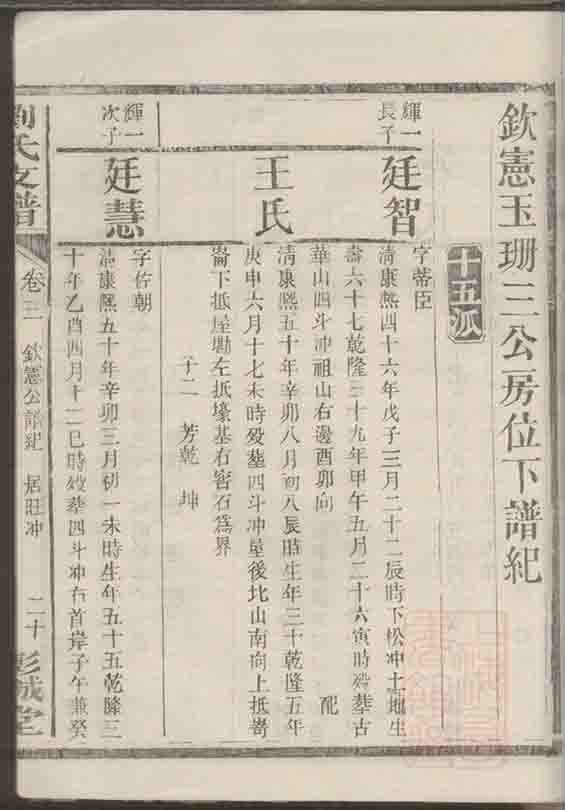 欽憲玉珊三公房位下譜紀
十五派
輝一
長子
廷智
字蒂臣
清康熙四十六年戊子三月二十二辰時下松冲土地生
壽六十七乾隆三十九年甲午五月二十六寅時歿塟古
華山四斗冲祖山右邊酉卯向
配
王氏
清康熙五十年辛卯八月初八辰時生年三十乾隆五年
庚申六月十七未時歿塟四斗冲屋後北山南向上抵嵜
崙下抵屋磡左抵壕基右窖石爲界
子二 芳乾 坤
輝一
次子
廷慧
字佐朝
清康熙五十年辛卯三月初一未時生年五十五乾隆三
十年乙酉四月十二巳時歿塟四斗冲右首岸子午兼癸
劉氏支譜
卷三
欽憲公譜紀
居旺冲
二十
彭城堂